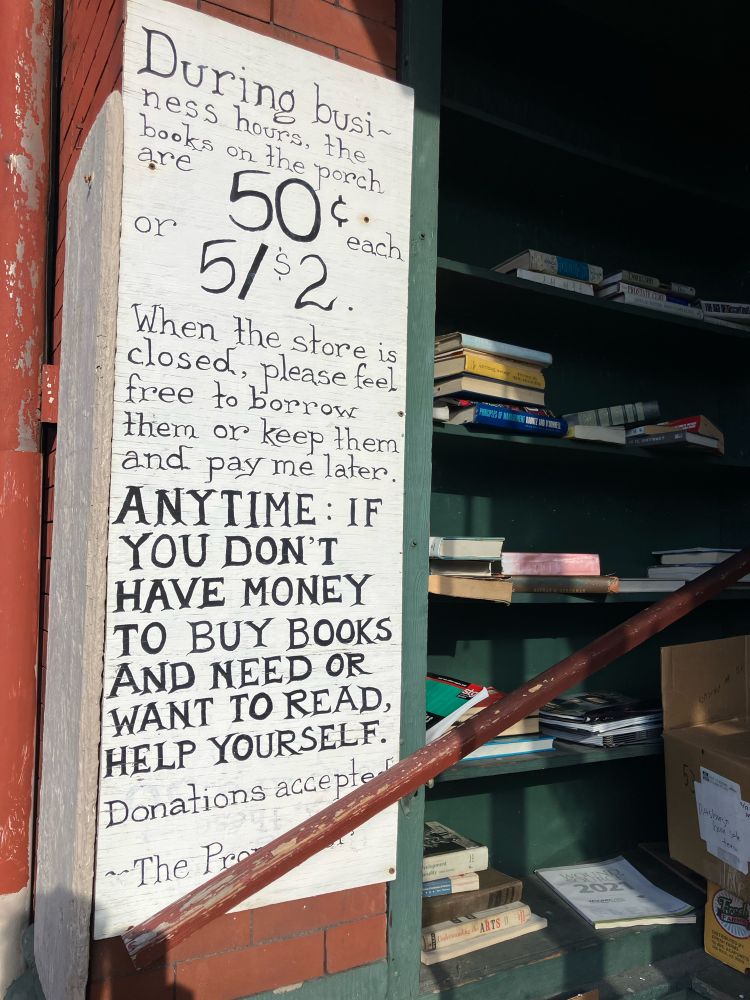 During busi~
ness hours, the
books on the porch
are 50¢
or each
5/$2.
When the store is
closed, please feel
free to borrow
them or keep them
and pay me later.
ANYTIME: IF
YOU DON'T
HAVE MONEY
TO BUY BOOKS
AND NEED OR
WANT TO READ,
HELP YOURSELF.
Donations accepted
~The
PROSTATE
PRINCIPLES OF MANAGEMENT
Understanding the ARTS
2021